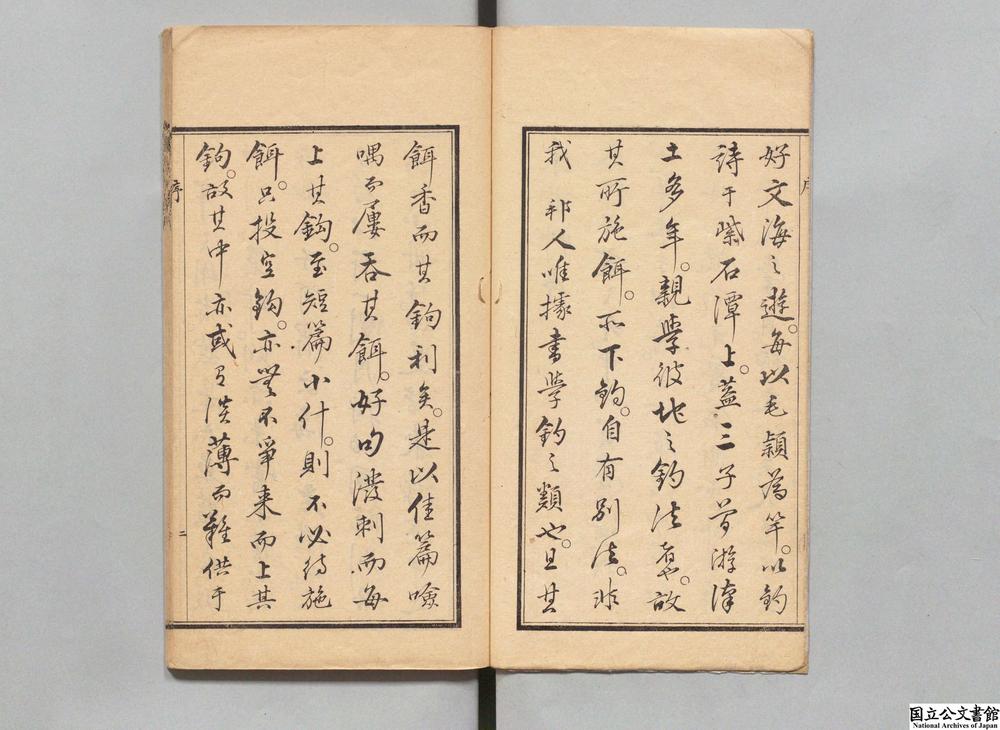 好文海之遊。每以毛穎為竿。以釣
詩于紫石潭上。蓋三子曾游漢
土多年。親學彼地之釣法者。故
其所施餌。所下鈎。自有別法。非
我邦人唯據書學釣之類也。且其
餌香而其鉤利矣。是以佳篇噞
喁而屢吞其餌。好句潑刺而每
上其鈎。至短篇小什。則不必待施
餌。只投空鈎。亦無不爭来而上其
鈎。故其中亦或有淡薄而難供于
序
二
序
国立公文書館
National Archives of Japan